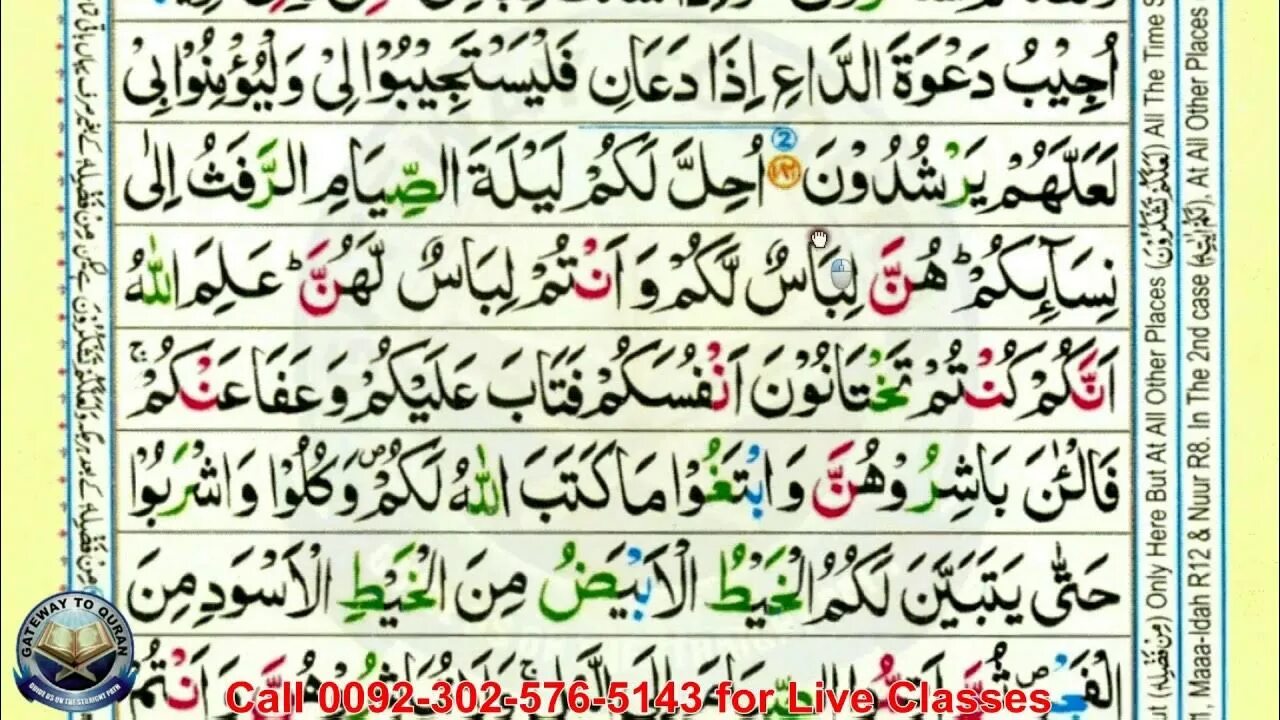 اُجِيْبُ دَعْوَةَ الدَّاعِ اِذَا دَعَانِ فَلْيَسْتَجِيْبُوْا لِيْ وَلْيُؤْمِنُوْا بِيْ
لَعَلَّهُمْ يَرْشُدُوْنَ ﴿۱۸۶﴾ 2 اُحِلَّ لَكُمْ لَيْلَةَ الصِّيَامِ الرَّفَثُ اِلٰى
نِسَآئِكُمْ ؕ هُنَّ لِبَاسٌ لَّكُمْ وَ اَنْتُمْ لِبَاسٌ لَّهُنَّ ؕ عَلِمَ اللّٰهُ
اَنَّكُمْ كُنْتُمْ تَخْتَانُوْنَ اَنْفُسَكُمْ فَتَابَ عَلَيْكُمْ وَ عَفَا عَنْكُمْ ۚ
فَالْـٰٔنَ بَاشِرُوْهُنَّ وَ ابْتَغُوْا مَا كَتَبَ اللّٰهُ لَكُمْ ۪ وَ كُلُوْا وَ اشْرَبُوْا
حَتّٰى يَتَبَيَّنَ لَكُمُ الْخَيْطُ الْاَبْيَضُ مِنَ الْخَيْطِ الْاَسْوَدِ مِنَ
Only Here But At All Other Places (لَعَلَّكُمْ تَشْكُرُوْنَ) All The Time
Maaa-Idah R12 & Nuur R8. In The 2nd case At All Other Places
GATEWAY TO QURAN
GUIDE US ON THE STRAIGHT PATH
Call 0092-302-576-5143 for Live Classes